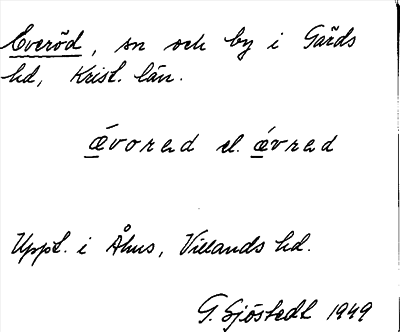 Everöd, sn och by i Gärds
hd, Krist. län.
ǽvorəd el. ǽvrəd
Uppt. i Åhus, Villands hd.
G. Sjöstedt 1949